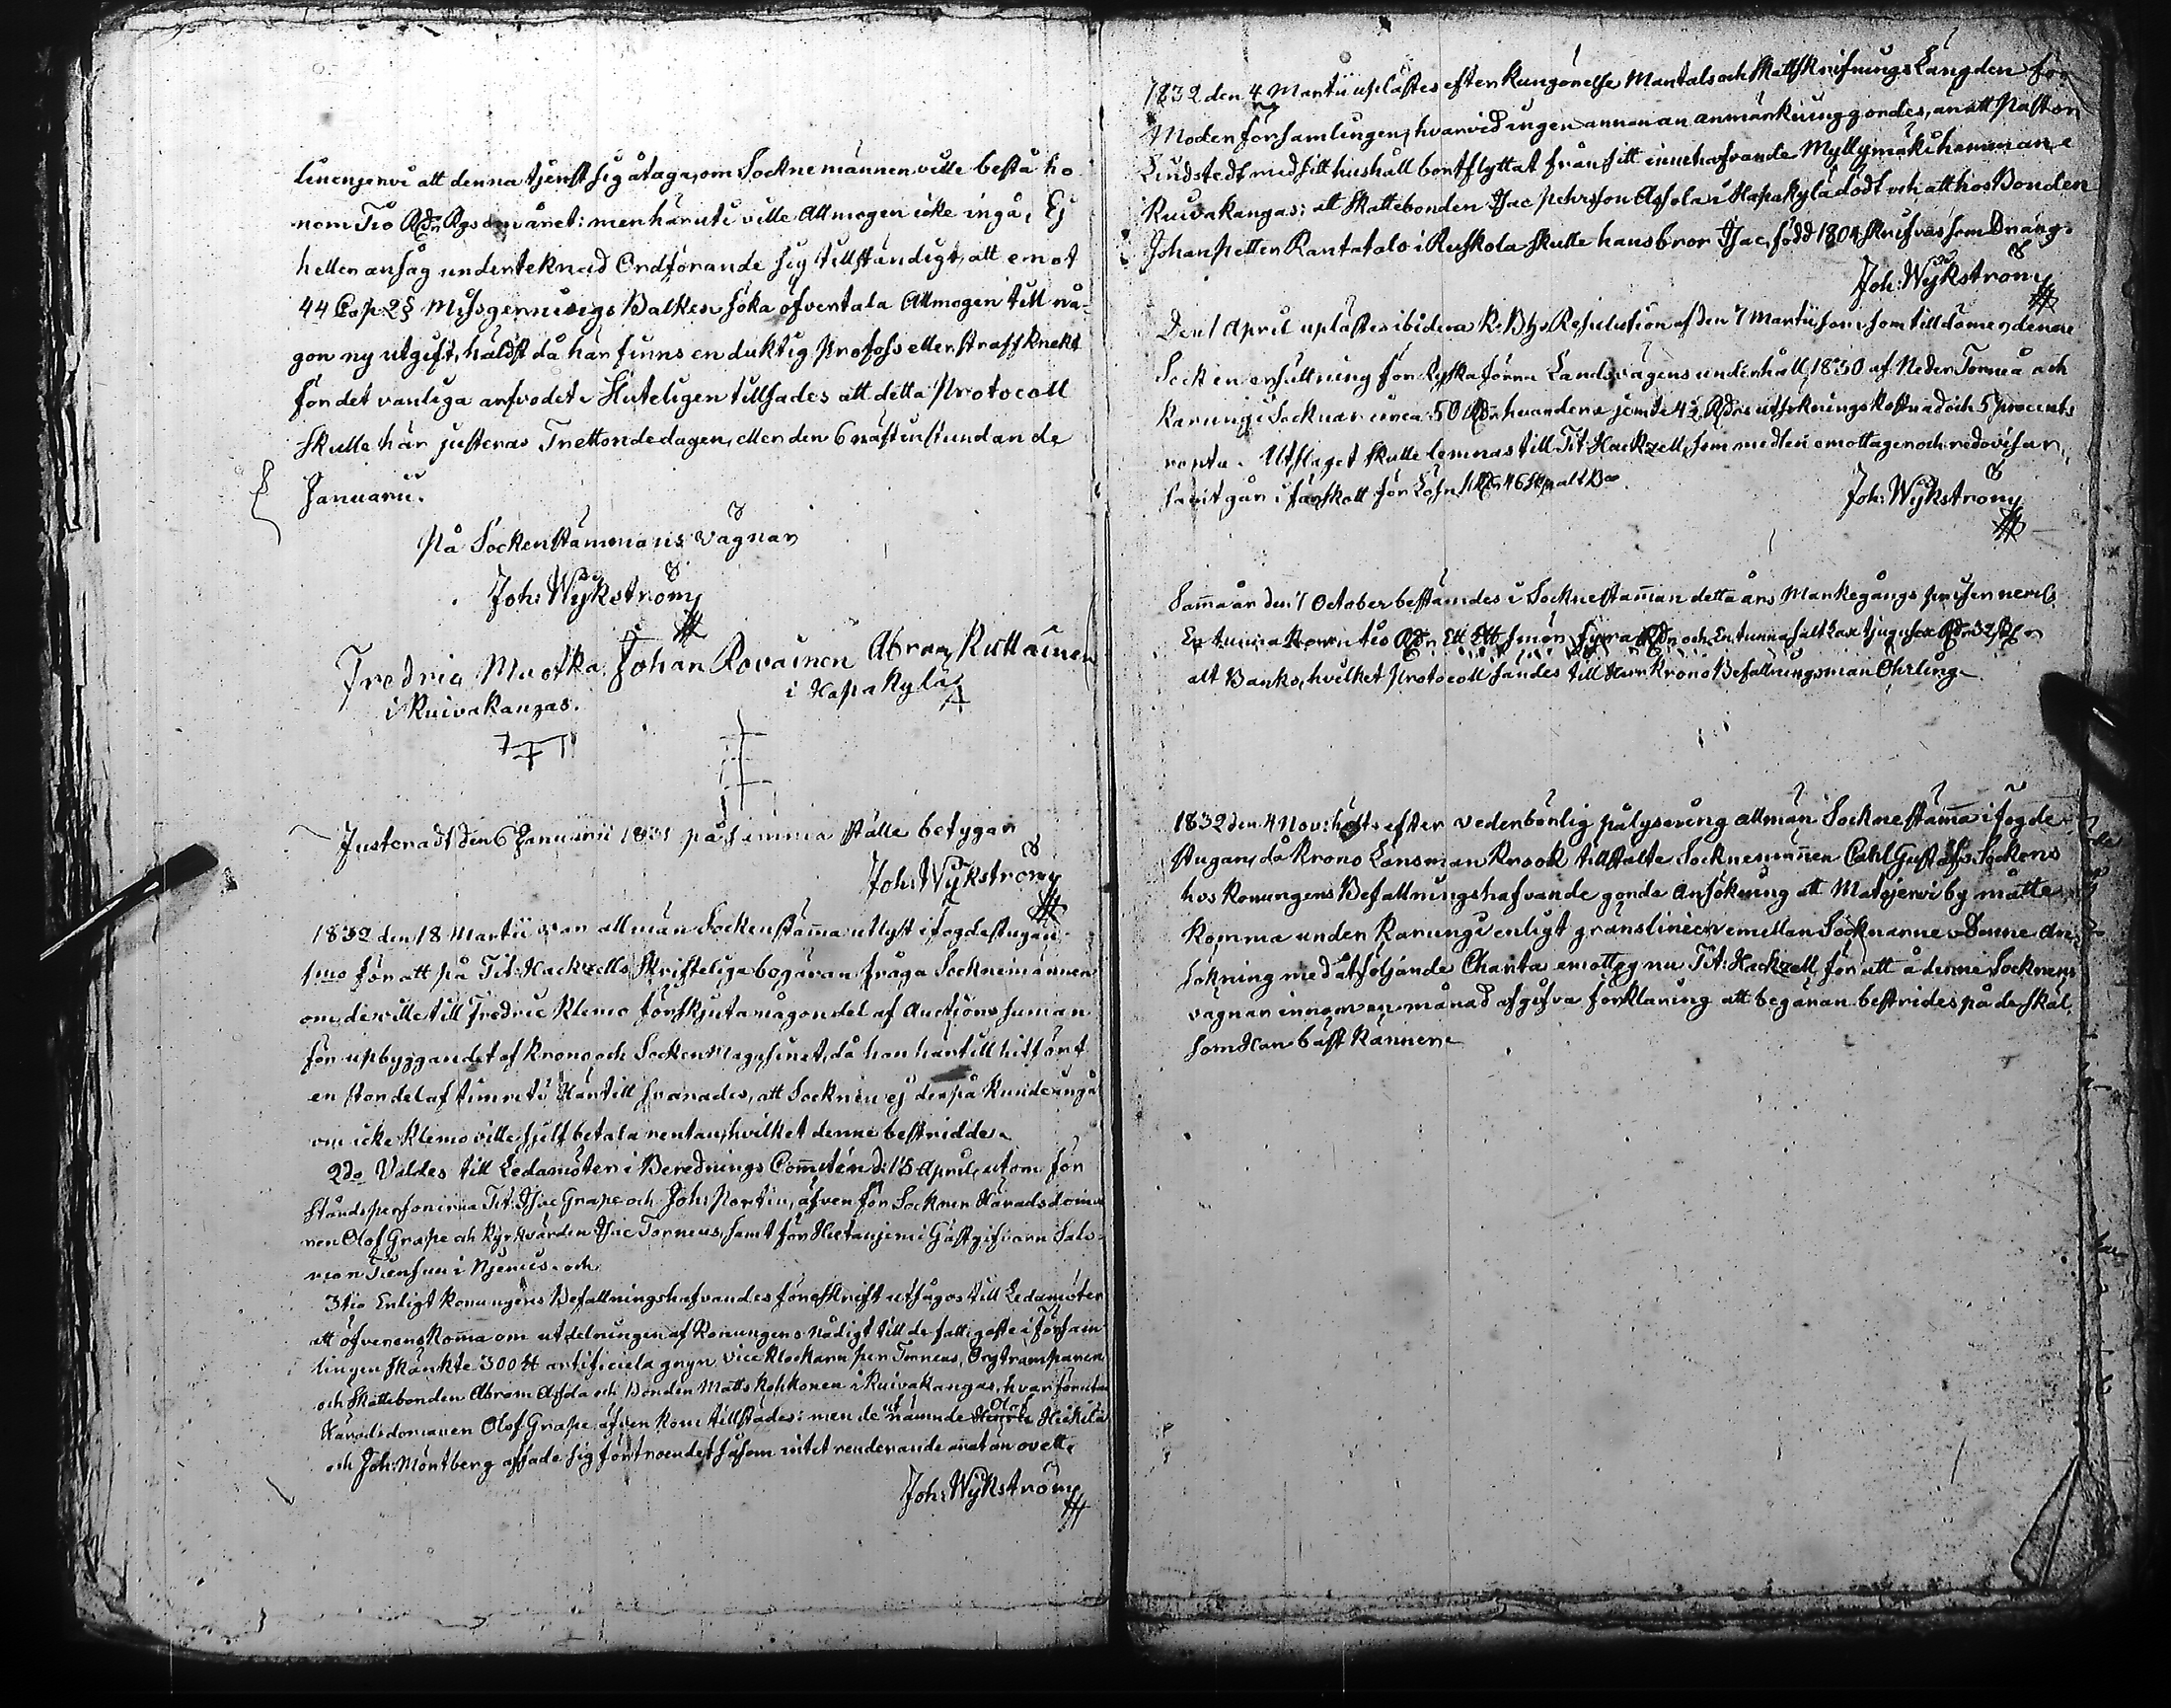 linenjervi att denna tjenst sig åtaga, om Sockne männen ville bestå ho
nom Tio Rdr Rgs om året: men häruti ville Allmogen icke ingå, Ej
heller ansåg underteknad Ordförande sig tillständigt, att emot
44 Cap. 2 § Missgernings Balken söka öfvertala Allmogen till nå-
gon ny utgift, häldst då här finns en duktig Profoss eller straffknekt
för det vanliga arfvodet. Sluteligen tillsades att detta Protocoll
skulle här justeras Trettondedagen, eller den 6 nästinstundande
Januarii.
På Sockenstämmans vägnar
Joh: Wykström
Fredric Muotka Johan Rovainen Abram Kuttainen
i Ruivakangas. i Hapakylä
Justeradt den 6 Januarii 1831 på samma ställe betygar
Joh: Wykström
1832 den 18 Martii var allmän Sockenstämma utlyst i fogdestugan
1mo för att på Tit: Hackzells skrifteliga begäran fråga Socknemännen
om de ville till Fredric Klemo förskjuta någon del af Auctions suman
för upbyggandet af Krono och Socken Magasinet, då han härtill hitfört
en stor del af timret: Härtill svarades, att Socknen ej derpå kunde ingå
om icke Klemo ville sjelf betala rentan, hvilket denne bestridde.
2do Valdes till Ledamöter i Berednings Comitén d: 15 April, utom för
ståndspersonerna Tit: Isac Grape och Joh: Portin, äfven för Socknen Häradsdoma
ren Olof Grape och Kyrkvärden Isac Torneus, samt för Hietaniemi Gästgifvaren Salo
mon i och
3tio Enligt Konungens Befallningshafvandes föreskrift utsågos till Ledamöter
att öfverenskomma om utdelningen af Konungens nådigt till de fattigaste i Försam
lingen skänkte 300 ℔ artificiela gryn, vice Klockarn Per Torneus, Orgtramparen
och Skattebonden Abram Assela och Bonden Matts Kohkonen i Ruivakangas, hvarförutan
Häradsdomaren Olof Grape äfven kom tillstädes: men de utnämnde Olof Heikilä
och Joh: Möntberg afsade sig förtroendet såsom intet renderande annat än ovett.
Joh: Wykström
1832 den 4 Martii uplästes efter kungörelse Mantals och Skattskrifnings Längden för
Moderförsamlingen, hvarvid ingen annan anmärkning gordes, än att Pastor
Lindstedt med sitt hushåll bortflyttat från sitt innehafvande Myllymäki hemman i
Ruivakangas; att Skattebonden Isac Pehrsson Assola i Hapakylä dödt och att hos Bonden
Johan Petter Rantatalo i Ruskola skulle hans bror Isac, född 1804 skrifvas som Dräng.
Joh: Wykström
Den 1 April uplästes ibidem K: B:s Resolution af den 7 Martii som tilldömer denne
Socken ersättning för Landsvägens underhåll 1830 af Neder Torneå och
Karungi Socknar circa 50 Rdr hvardera jemte 4½ Rdrs utsokningskostnad och 5 procents
renta. Utslaget skulle lemnas till Tit: Hackzell, som medlen emottager och redovisar,
samt går i förskott för Lösn 1 Rdr 46 alt Bo.
Joh: Wykström
Samma år den 7 October bestämdes i Socknestämman detta års Markegångs priser neml:
En tunna Korn tio Rdr Ett ℔ smör fyra Rdr och En tunna salt Lax tjugusex Rdr 32 sk
alt Banko, hvilket Protocoll sändes till Herr Krono Befallningsman Öhrling.
1832 den 4 Nov: hölts efter vederbörlig pålysning allmän Socknestämma i fogde
stugan, då Krono Länsman Krook tillställte Socknemännen Carl Gustafs Sockens
hos Konungens Befallningshafvande gorde Ansökning att Matojervi by måtte
komma under Karungi enligt gränslinien emellan Socknarne. Denne An
sökning med åtföljande Charta emottog nu Tit: Hackzell, för att å denne Socknens
vägnar innom en månad afgifva förklaring att begäran bestrides på de skäl
som Han bäst känner.